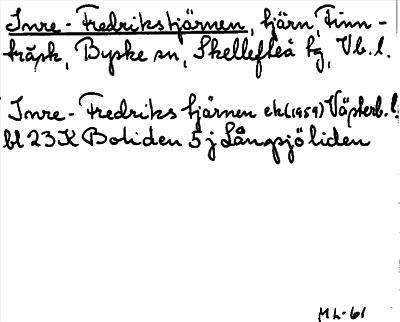 Inre-Fredrikstjärnen, tjärn, Finn-
träsk, Byske sn, Skellefteå tg, Vb.l.
Inre-Fredrikstjärnen ekl(1959) Västerb.l.
bl 23K Boliden 5j Långsjöliden
ML-61